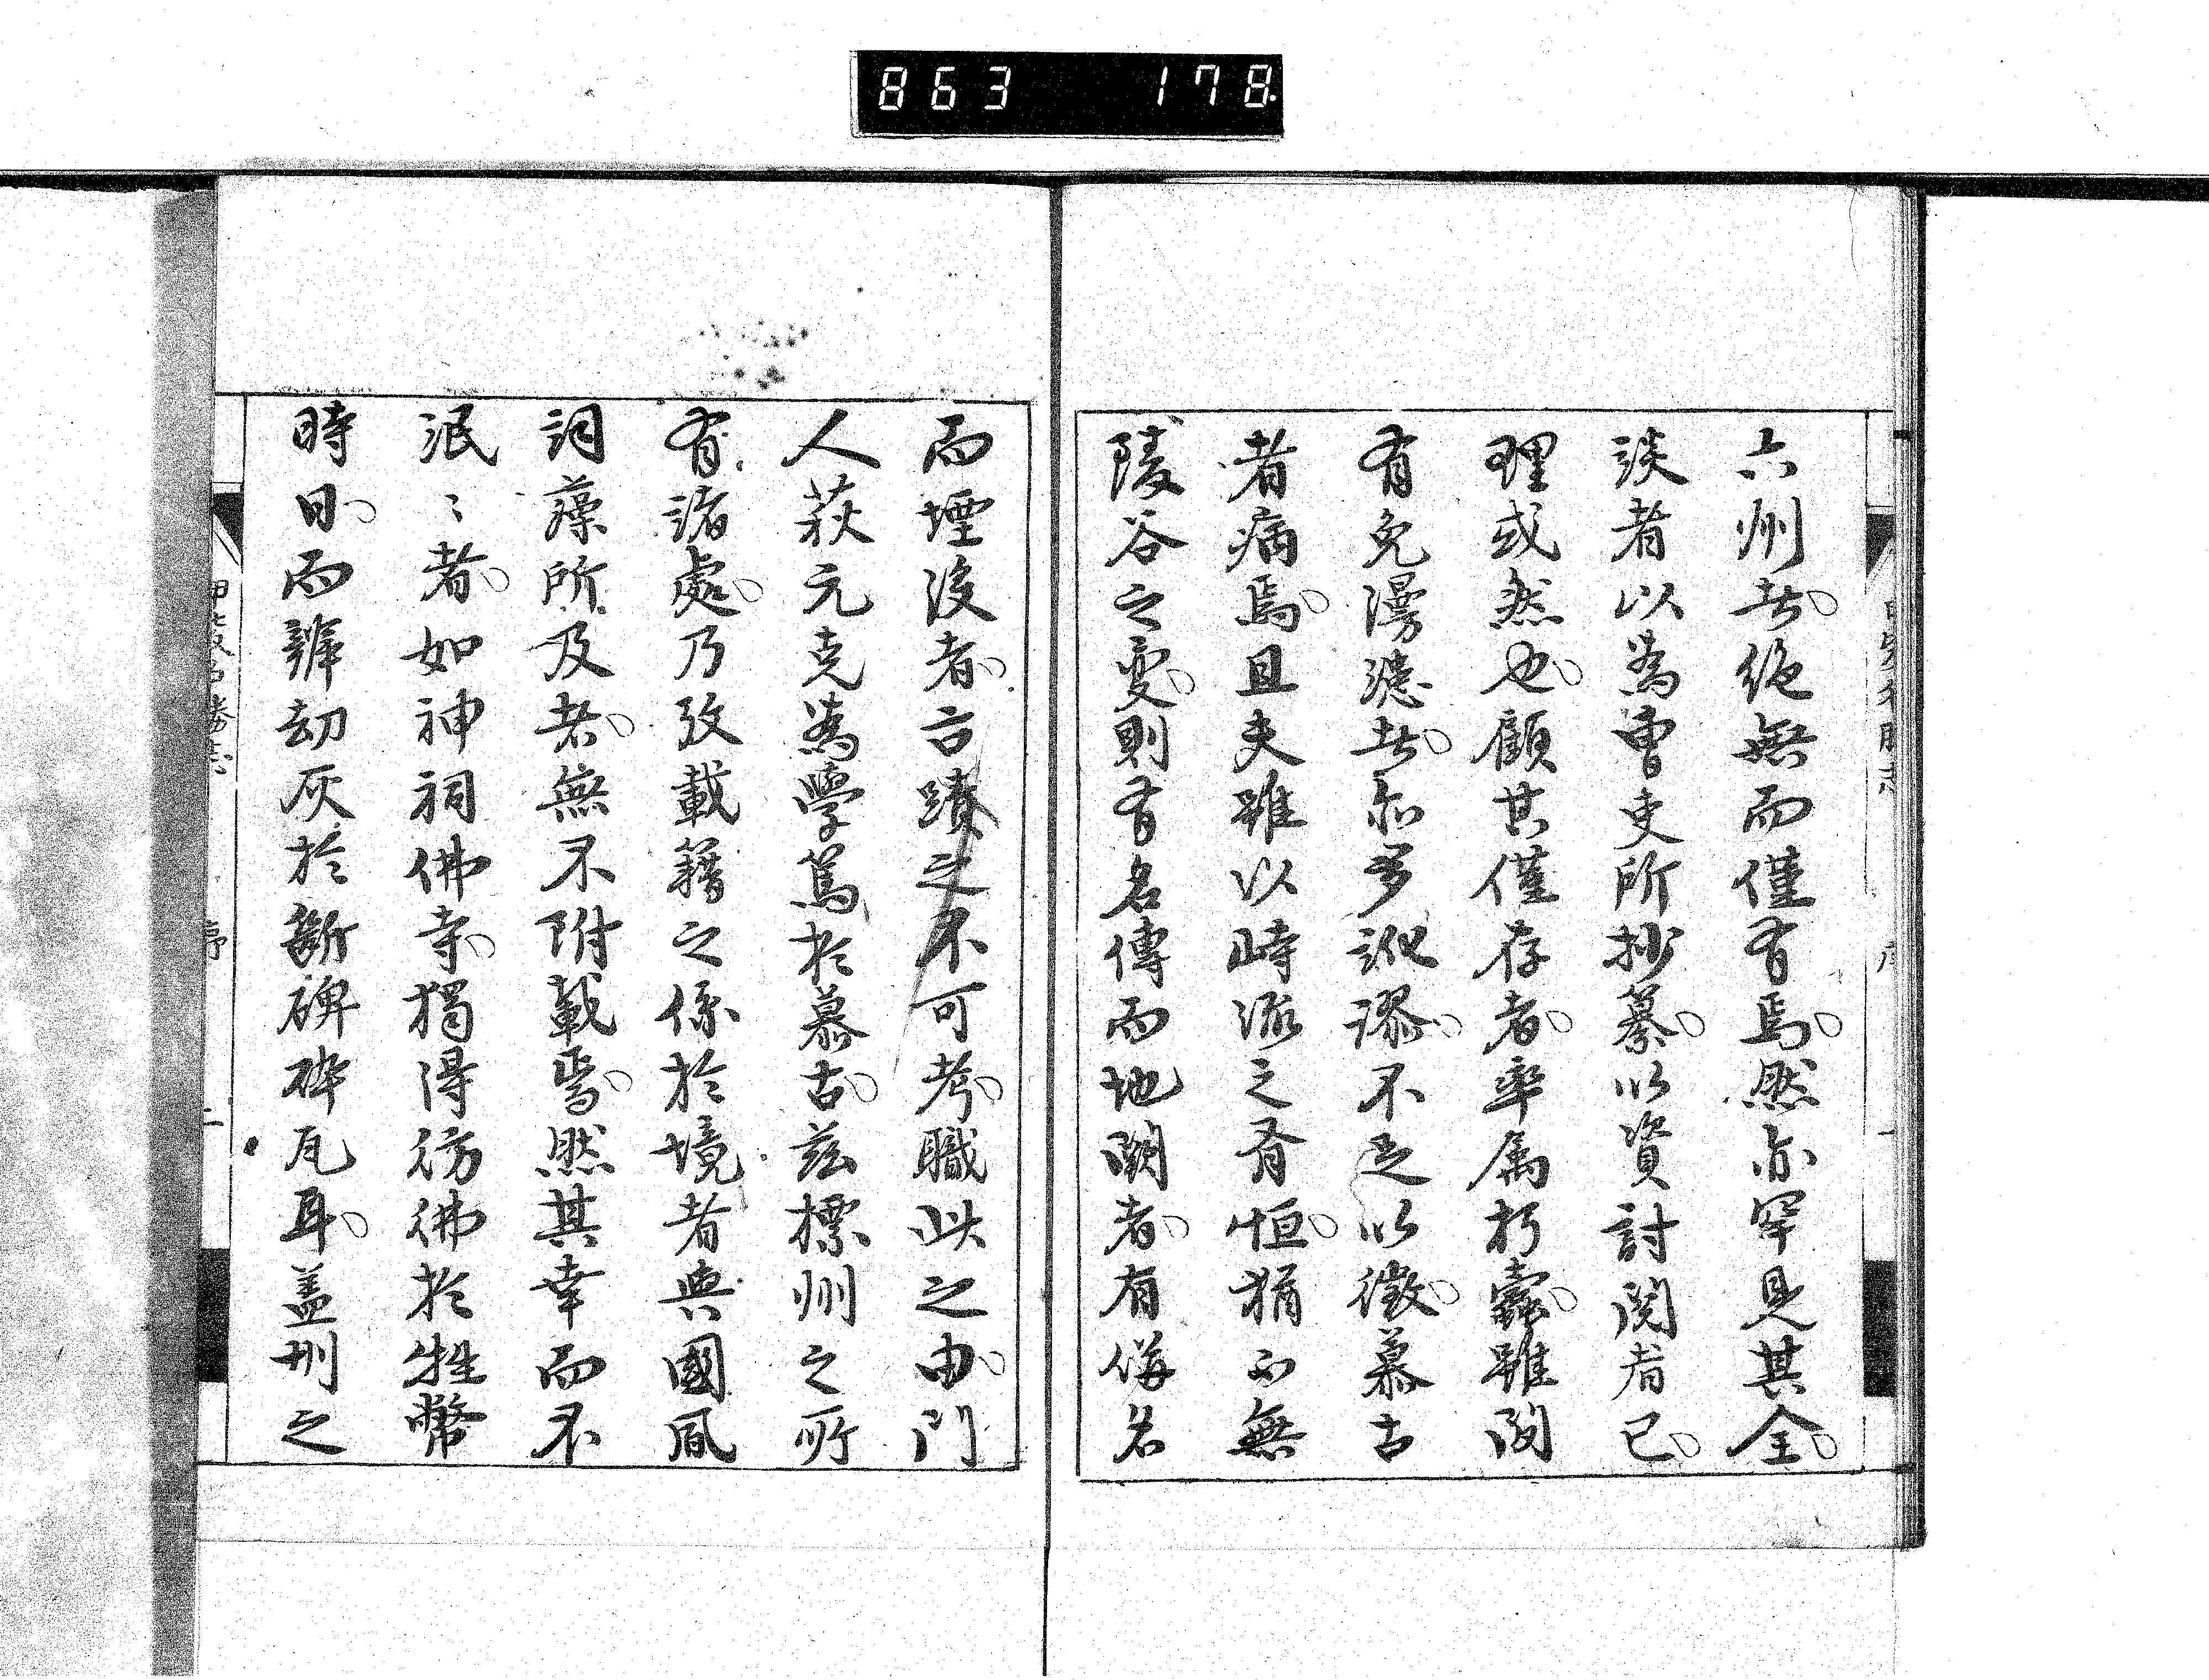 863 178
六州者絶無而僅有焉然亦罕見其全
談者以為曹吏所抄纂以資討閱者已
理或然也顧其僅存者率属朽蠹雖閱
有免漫漶者亦多訛謬不足以徵慕古
者病焉且夫雖以時流之有恒猶不無
陵谷之變則有名傳而地闕者有侈名
而堙後者古蹟之不可考職此之由門
人荻元克為學篤於慕古茲摽州之所
有諸處乃攷載籍之係於境者與國風
詞藻所及者無不附載焉然其幸而不
泯〻者如神祠佛寺獨得彷彿於牲幣
時日而辨劫灰於斷碑碎瓦耳盖州之
甲斐名勝志 序 二